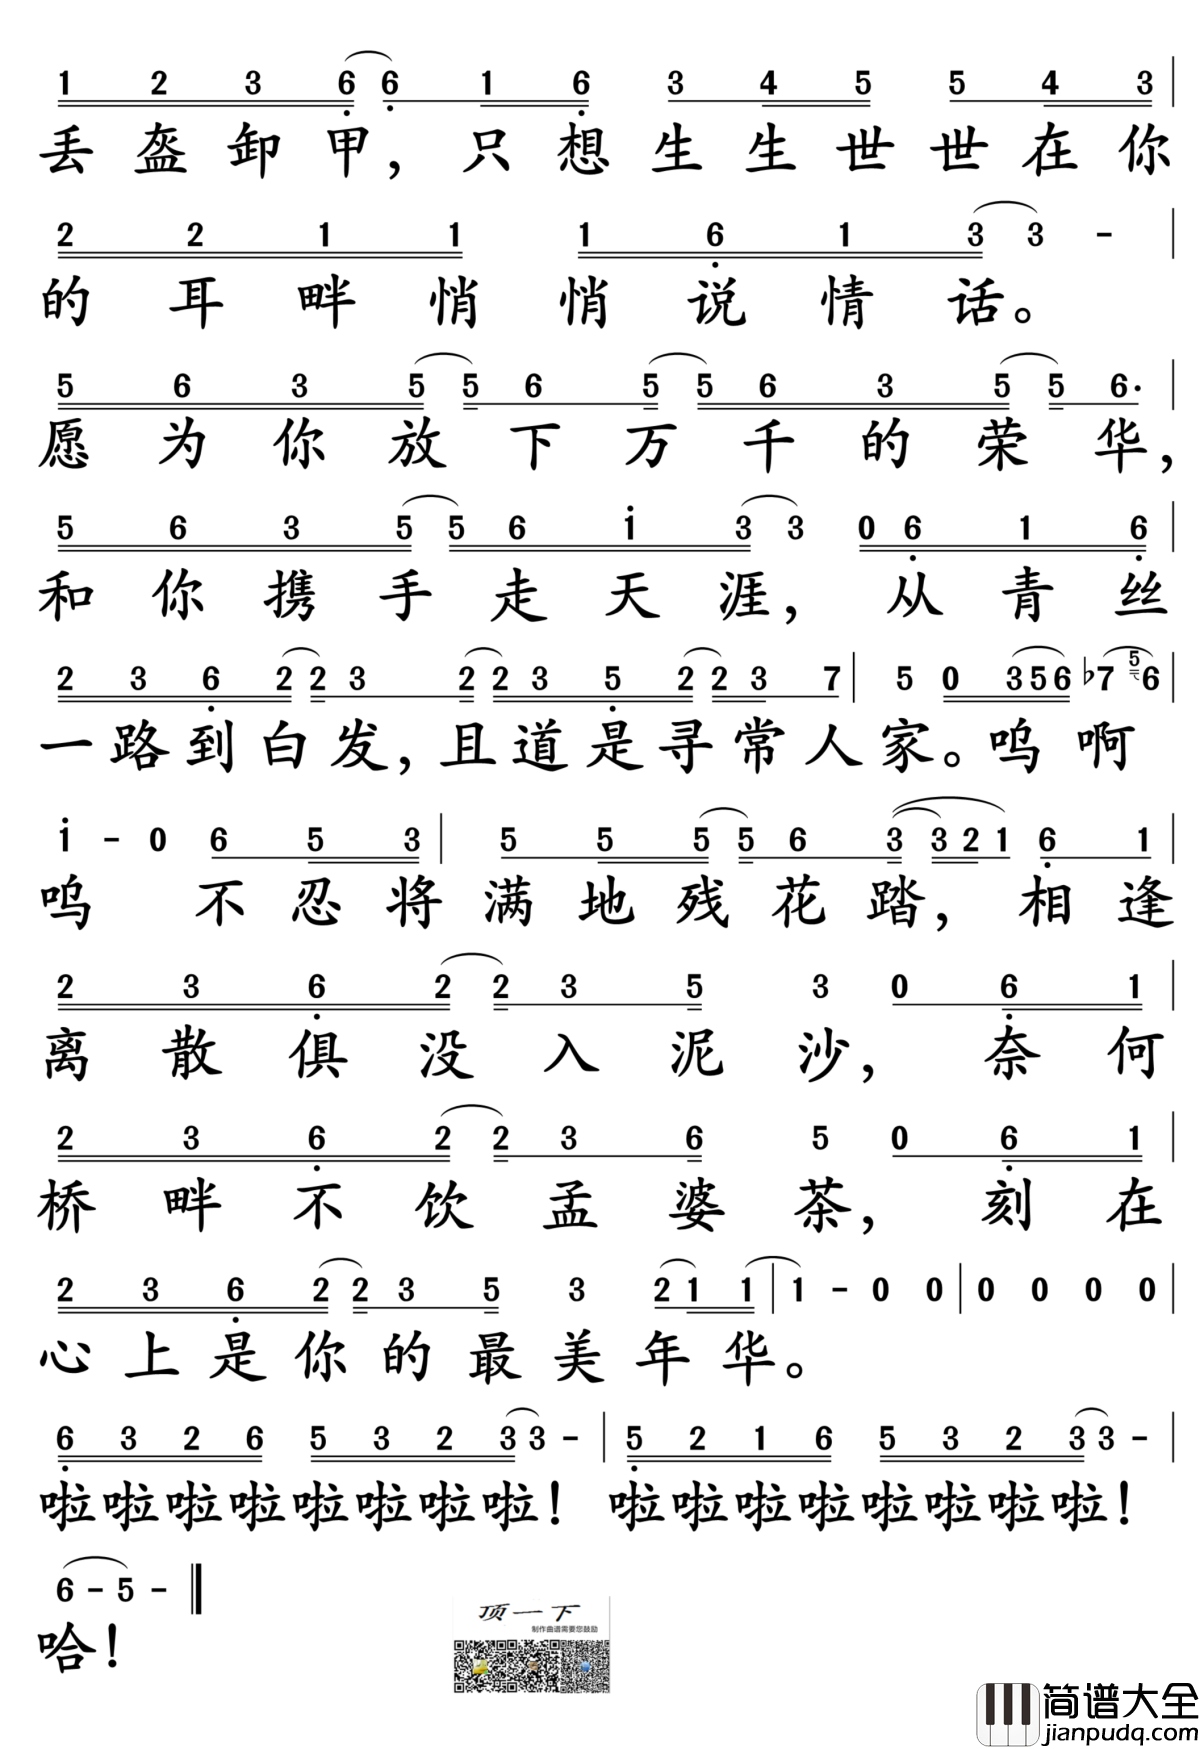 1 2 3 6 6 1 6 3 4 5 5 4 3
丢盔卸甲，只想生生世世在你
2 2 1 1 1 6 1 3 3 -
的耳畔悄悄说情话。
5 6 3 5 5 6 5 5 6 3 5 5 6·
愿为你放下万千的荣华，
5 6 3 5 5 6 i 3 3 0 6 1 6
和你携手走天涯，从青丝
2 3 6 2 2 3 2 2 3 5 2 2 3 7 | 5 0 3 5 6 ♭7 5 6
一路到白发，且道是寻常人家。呜啊
i - 0 6 5 3 | 5 5 5 5 6 3 3 2 1 6 1
呜 不忍将满地残花踏，相逢
2 3 6 2 2 3 5 3 0 6 1
离散俱没入泥沙，奈何
2 3 6 2 2 3 6 5 0 6 1
桥畔不饮孟婆茶，刻在
2 3 6 2 2 3 5 3 2 1 1 | 1 - 0 0 | 0 0 0 0
心上是你的最美年华。
6 3 2 6 5 3 2 3 3 - | 5 2 1 6 5 3 2 3 3 -
啦啦啦啦啦啦啦啦！啦啦啦啦啦啦啦啦！
6 - 5 -
哈！
顶一下
制作曲谱需要您鼓励
简谱大全
jianpudq.com